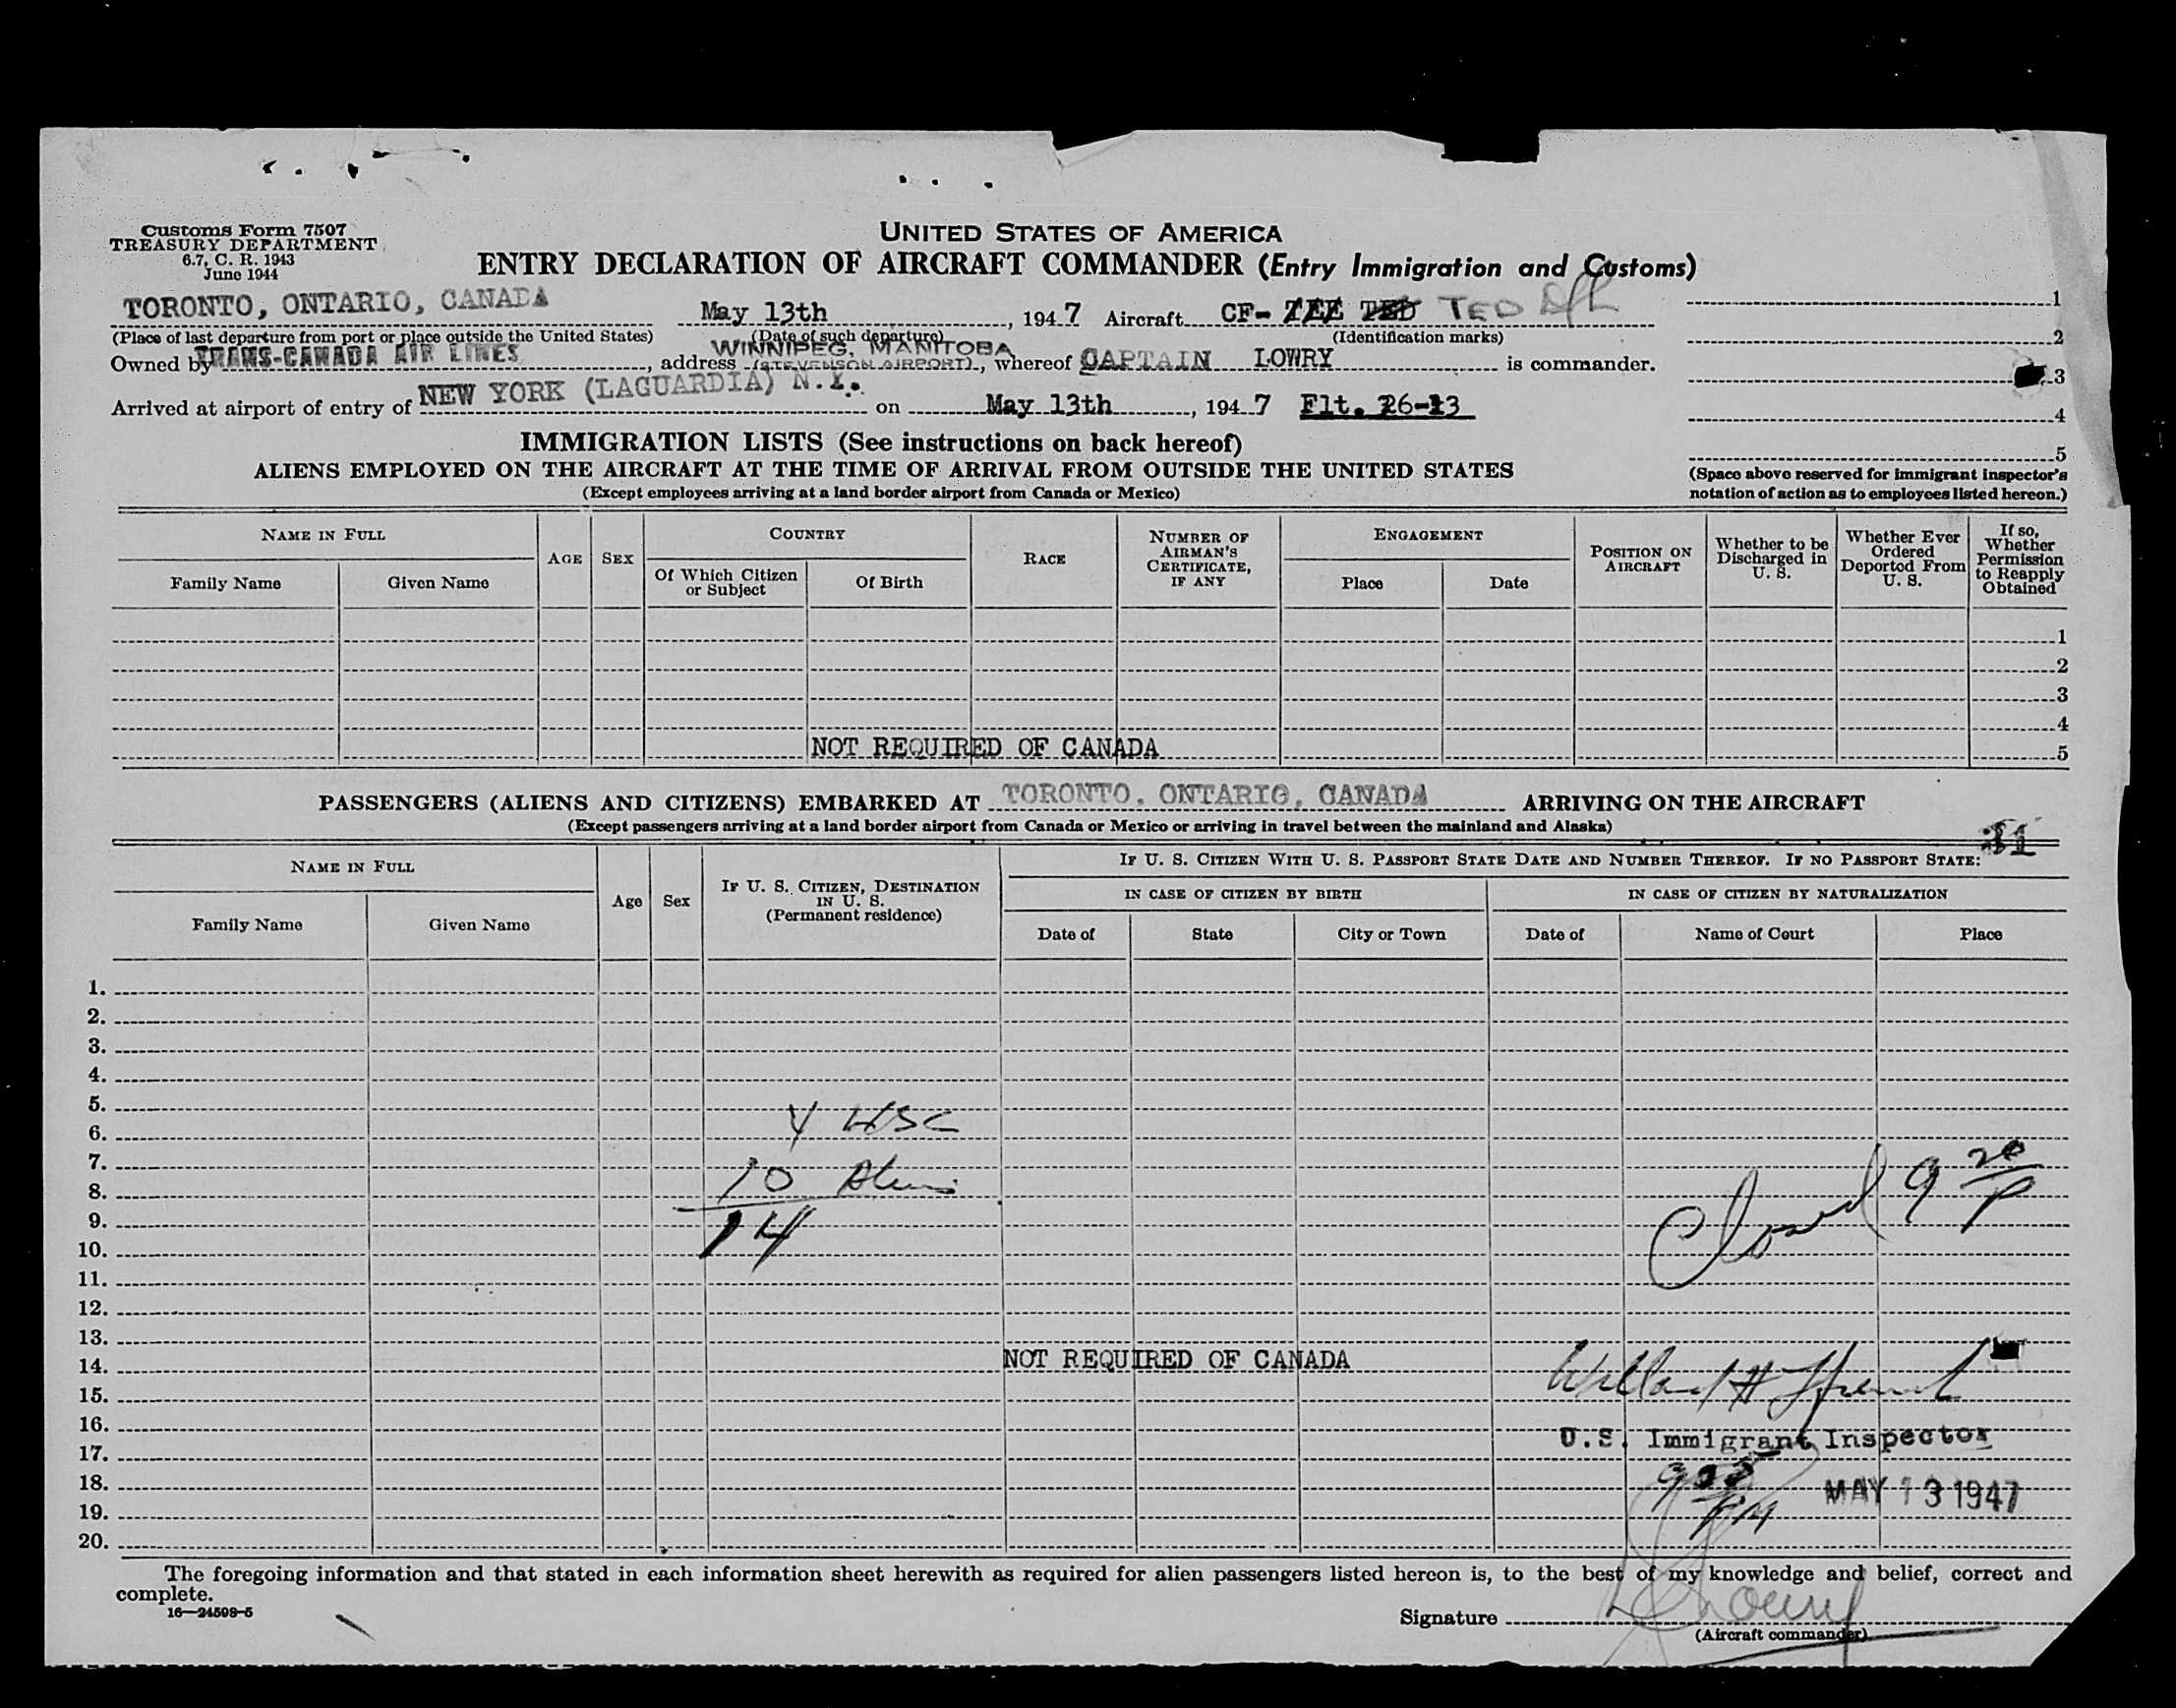 Customs Form 7507
TREASURY DEPARTMENT
6.7, C. R. 1943
June 1944
UNITED STATES OF AMERICA
ENTRY DECLARATION OF AIRCRAFT COMMANDER (Entry Immigration and Customs)
TORONTO, ONTARIO, CANADA May 13th, 1947 Aircraft CF- TED
(Place of last departure from port or place outside the United States) (Date of such departure) (Identification marks)
Owned by TRANS-CANADA AIR LINES, address WINNIPEG, MANITOBA (STEVENSON AIRPORT), whereof CAPTAIN LOWRY is commander.
Arrived at airport of entry of NEW YORK (LAGUARDIA) N.Y. on May 13th, 1947 Flt. 26-13
1
2
3
4
5
(Space above reserved for immigrant inspector's
notation of action as to employees listed hereon.)
IMMIGRATION LISTS (See instructions on back hereof)
ALIENS EMPLOYED ON THE AIRCRAFT AT THE TIME OF ARRIVAL FROM OUTSIDE THE UNITED STATES
(Except employees arriving at a land border airport from Canada or Mexico)
NAME IN FULL
Family Name
Given Name
AGE
SEX
COUNTRY
Of Which Citizen or Subject
Of Birth
RACE
NUMBER OF AIRMAN'S CERTIFICATE, IF ANY
ENGAGEMENT
Place
Date
POSITION ON AIRCRAFT
Whether to be Discharged in U. S.
Whether Ever Ordered Deported From U. S.
If so, Whether Permission to Reapply Obtained
1
2
3
4
NOT REQUIRED OF CANADA 5
PASSENGERS (ALIENS AND CITIZENS) EMBARKED AT TORONTO, ONTARIO, CANADA ARRIVING ON THE AIRCRAFT
(Except passengers arriving at a land border airport from Canada or Mexico or arriving in travel between the mainland and Alaska)
31
NAME IN FULL
Family Name
Given Name
Age
Sex
IF U. S. CITIZEN, DESTINATION IN U. S.
(Permanent residence)
IF U. S. CITIZEN WITH U. S. PASSPORT STATE DATE AND NUMBER THEREOF. IF NO PASSPORT STATE:
IN CASE OF CITIZEN BY BIRTH
Date of
State
City or Town
IN CASE OF CITIZEN BY NATURALIZATION
Date of
Name of Court
Place
1.
2.
3.
4.
5.
4 USC
6.
7.
10 Aliens
8.
9.
14
Closed 9 20 P
10.
11.
12.
13.
14. NOT REQUIRED OF CANADA
15. Willard H
16.
U.S. Immigrant Inspector
17.
18. MAY 13 1947
19. PM
20.
The foregoing information and that stated in each information sheet herewith as required for alien passengers listed hereon is, to the best of my knowledge and belief, correct and
complete.
16—24598-5
Signature Lowry
(Aircraft commander)